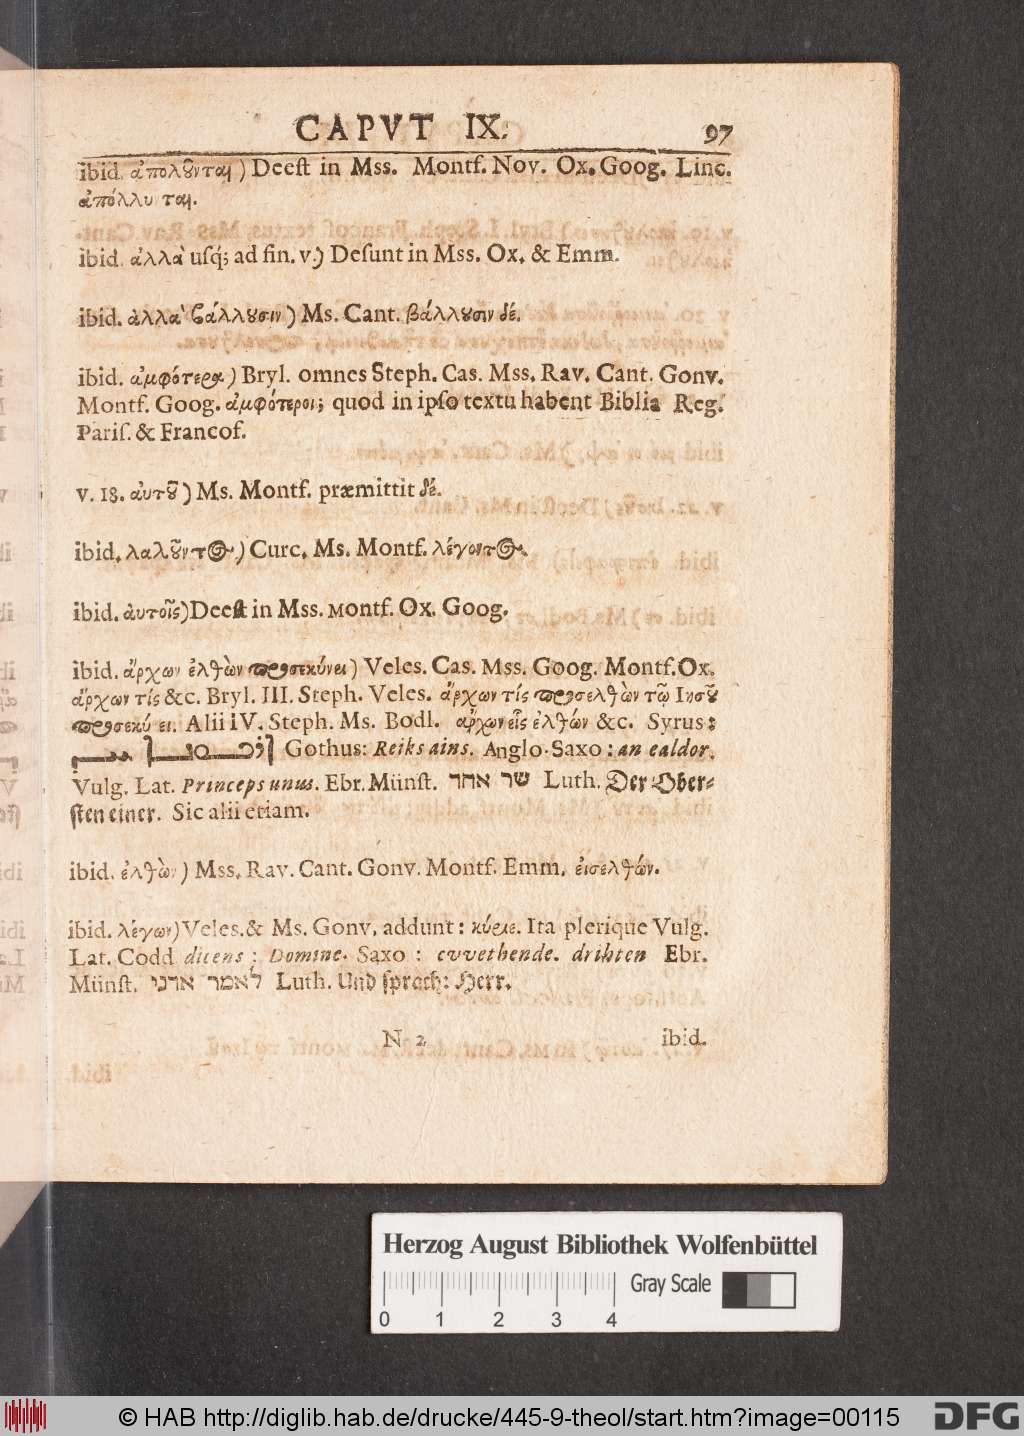 CAPVT IX. 97
ibid. ἀπολοῦνται) Deest in Mss. Montf. Nov. Ox. Goog. Linc.
ἀπόλλυ ται.
ibid. ἀλλα` usq; ad fin. v.) Desunt in Mss. Ox. & Emm.
ibid. ἀλλα` βάλλουσιν) Ms. Cant. βάλλουσιν δέ.
ibid. ἀμφότερα) Bryl. omnes Steph. Cas. Mss. Rav. Cant. Gonv.
Montf. Goog. ἀμφότεροι; quod in ipso textu habent Biblia Reg.
Paris. & Francof.
v. 18. αὐτοῦ) Ms. Montf. præmittit δέ.
ibid. λαλοῦντος) Curc. Ms. Montf. λέγοντος.
ibid. αὐτοῖς) Deest in Mss. Montf. Ox. Goog.
ibid. ἄρχων ἐλθὼν προσεκύνει) Veles. Cas. Mss. Goog. Montf. Ox.
ἄρχων τίς &c. Bryl. III. Steph. Veles. ἄρχων τίς προσελθὼν τῷ Ιησοῦ
προσεκύ ει. Alii IV. Steph. Ms. Bodl. ἄρχων εἷς ἐλθών &c. Syrus:
Gothus: Reiks ains. Anglo-Saxo: an ealdor.
Vulg. Lat. Princeps unus. Ebr. Münst. שר אחר Luth. Der Ober-
sten einer. Sic alii etiam.
ibid. ἐλθὼν) Mss. Rav. Cant. Gonv. Montf. Emm. εἰσελθών.
ibid. λέγων) Veles. & Ms. Gonv. addunt: κύριε. Ita plerique Vulg.
Lat. Codd dicens: Domine. Saxo: cvvethende. drihten Ebr.
Münst. לאמר אדני Luth. Und sprach: Herr.
N 2 ibid.
Herzog August Bibliothek Wolfenbüttel
Gray Scale
0 1 2 3 4
© HAB http://diglib.hab.de/drucke/445-9-theol/start.htm?image=00115 DFG